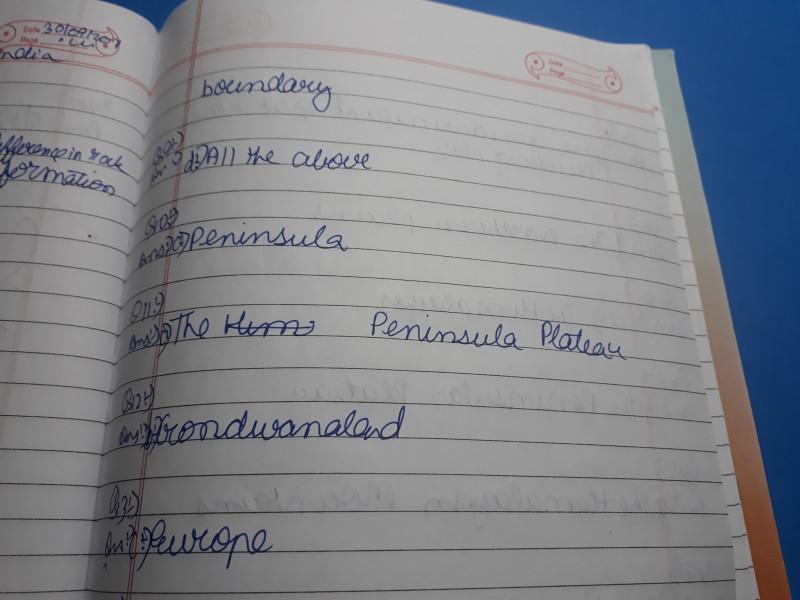 Date 30/09/20
Page
India
difference in rock
formation
Date
Page
boundary
d) All the above
Ans:) Peninsula
Q11:)
Ans:) The Peninsula Plateau
Q12:)
Ans:) Gondwanaland
Ans:) Europe